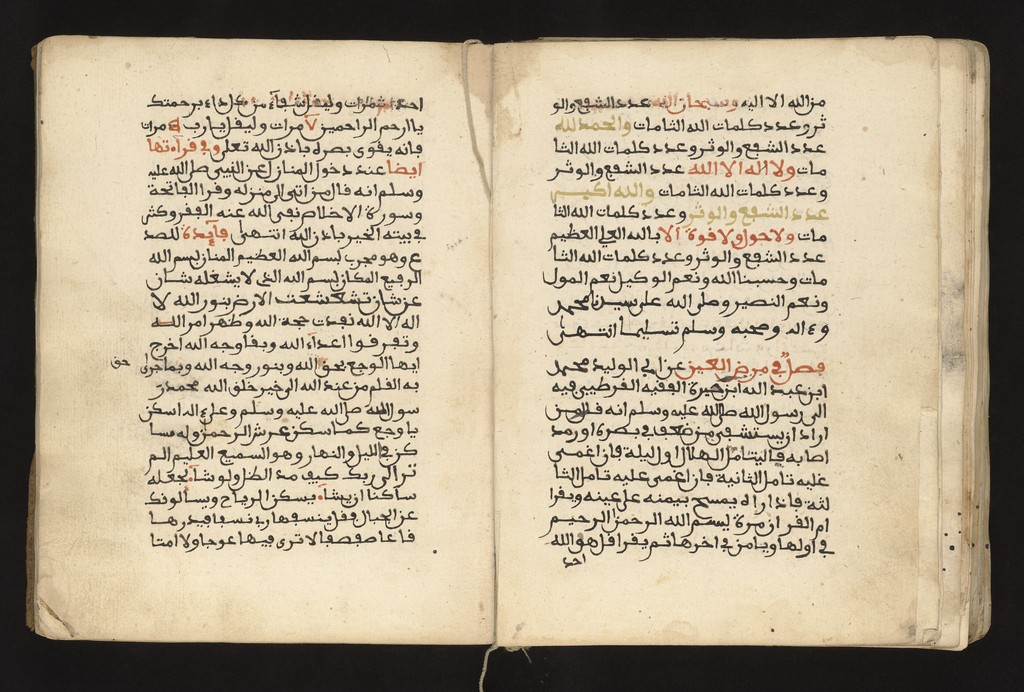 من الله الا اليه وسبحان الله عدد الشفع والو
تر وعدد كلمات الله التامات والحمد لله
عدد الشفع والوتر وعدد كلمات الله التا
مات ولا اله الا الله عدد الشفع والوتر
وعدد كلمات الله التامات والله اكبر
عدد الشفع والوتر وعدد كلمات الله التا
مات ولا حول ولا قوة الا بالله العلي العظيم
عدد الشفع والوتر وعدد كلمات الله التا
مات وحسبنا الله ونعم الوكيل نعم المول
ونعم النصير وصلى الله على سيدنا محمد
وءاله وصحبه وسلم تسليما انتهى
فصل في مرض العين عن ابي الوليد محمد
ابن عبد الله ابن خيرة الفقيه القرطبي فيه
الى رسول الله صلى الله عليه وسلم انه قال من
اراد ان يستشفي من ضعف في بصره او رمد
اصابه فاليتامل الهلال اول ليلة فان اغمي
عليه تامل الثانية فان اغمي عليه تامل الثا
لثة فاذا راه يمسح بيمنه على عينه ويقرا
ام القران مرة بسم الله الرحمن الرحيم
في اولها ويامن في اخرها ثم يقرا قل هو الله
احد
احد مرات وليقل شفاء من كل داء برحمتك
يا ارحم الراحمين ٧ مرات وليقل يا رب مرات
فانه يقوى بصره باذن الله تعلى وفي قراءتها
ايضا عند دخول المنازل عن النبي صلى الله عليه
وسلم انه قال من اتى الى منزله وقرا الفاتحة
وسورة الاخلاص نفى الله عنه الفقر وكثر
في بيته الخير باذن الله انتهى فايدة للصد
ع وهو مجرب بسم الله العظيم المنان بسم الله
الرفيع المكان بسم الله الذي لا يشغله شان
عن شان تشعشعت الارض بنور الله لا
اله الا الله نفدت حجة الله وظهر امر الله
وتفرقوا اعداء الله وبقا وجه الله اخرج
ايها الوجع بحق الله وبنور وجه الله وبما جرى
حق
به القلم من عند الله الى خير خلق الله محمد ر
سول الله صلى الله عليه وسلم وعلى اله اسكن
يا وجع كما سكن عرش الرحمن وله ما س
كن في الليل والنهار وهو السميع العليم الم
تر الى ربك كيف مد الظل ولو شاء لجعله
ساكنا ان يشاء يسكن الرياح ويسالونك
عن الجبال فقل ينسفها ربي نسفا فيذرها
قاعا صفصفا لا ترى فيها عوجا ولا امتا